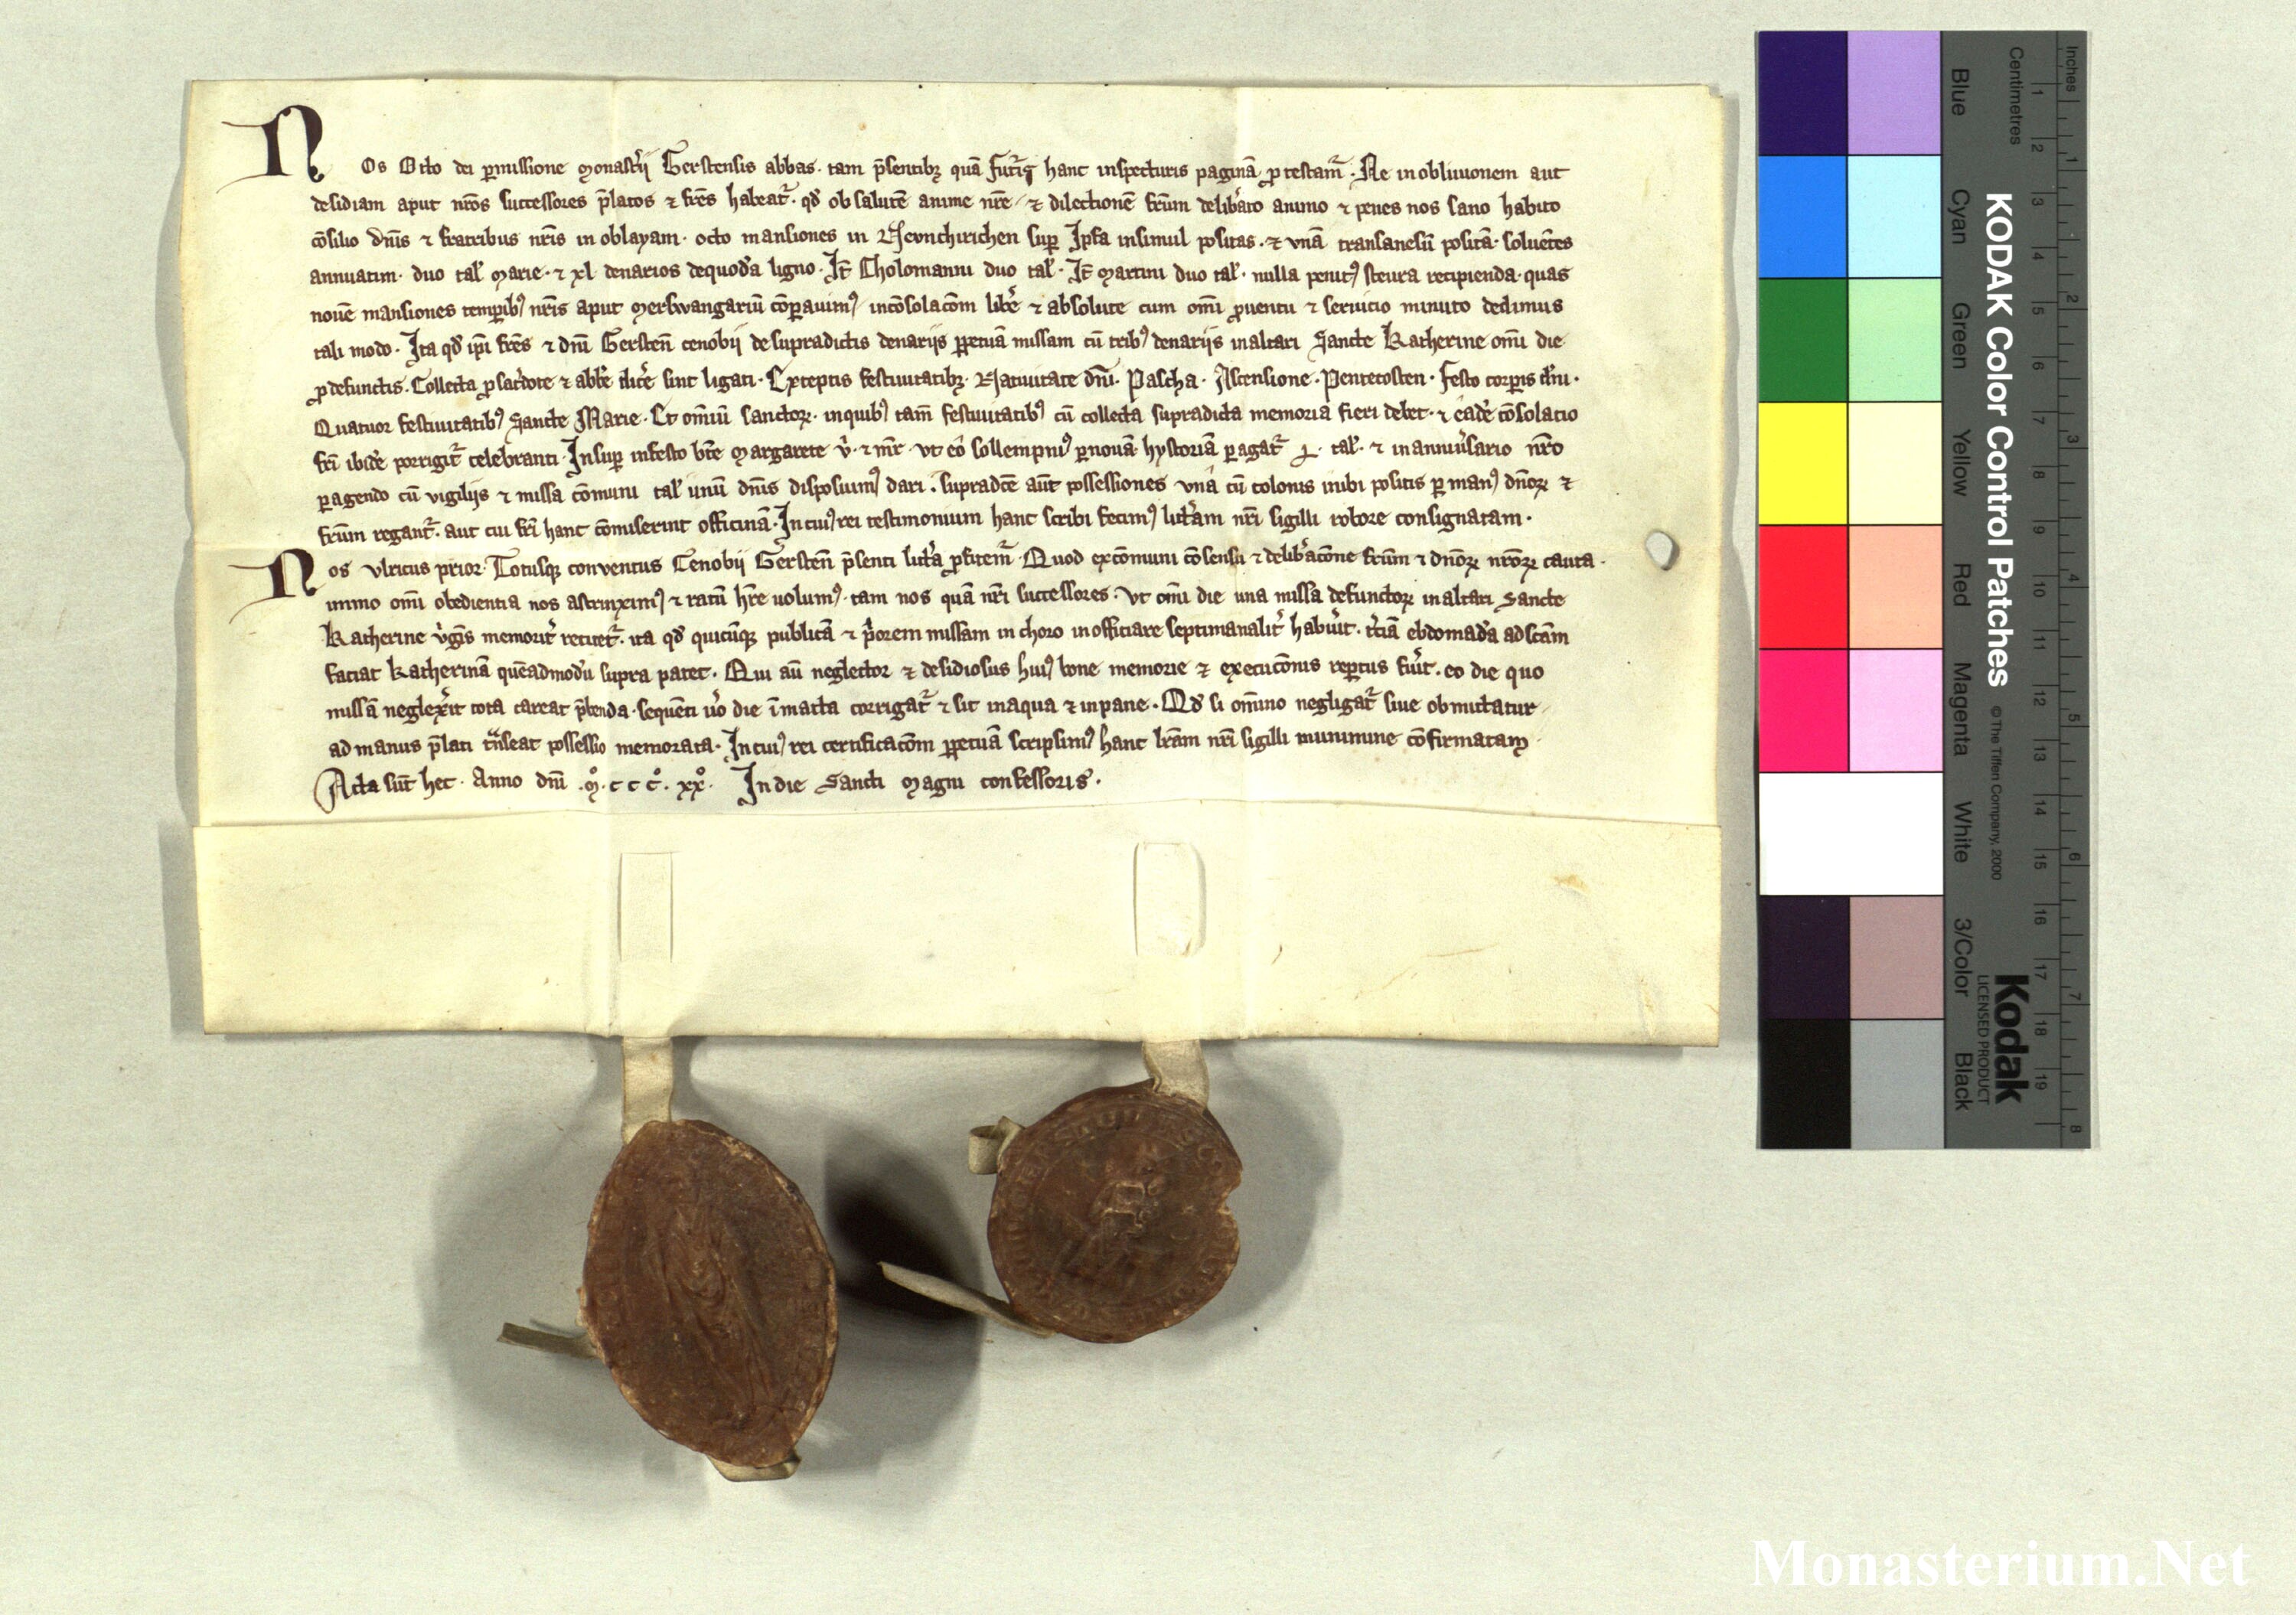 Nos Otto dei p̄missione monast'ij Gerstensis abbas. tam p̄sentibꝫ quā futur̄ hanc inspecturis paginā p̱testam̄. Ne in obliuionem aut
desidiam aput nr̄os successores p̄latos ⁊ fr̄es habeat᷑. qd̄ ob salutē anime nr̄e ⁊ dilectionē fr̄um delib̄ato animo ⁊ penes nos sano habito
cōsilio dn̄is ⁊ fratribus nr̄is in oblayam. octo mansiones in Nevnchirichen sup̄ Ipfa insimul positas. ⁊ vnā transanesū positā. soluētes
annuatim. duo tal̄ Marie. ⁊ xl denarios de quod̄a ligno. It̄ Cholomanni duo tal̄. It̄ Martini duo tal̄. nulla penit᷒ steura recipienda. quas
nouē mansiones temp̄ib᷒ nr̄is aput Merswangariū cōp̄auim᷒ in cōsolac̄om lib̄e ⁊ absolute cum om̄i p̱uentu ⁊ seruicio minuto dedimus
tali modo. Ita qd̄ ip̄i fr̄es ⁊ dn̄i Gersten̄ cenobij de supradictis denarijs p̱petuā missam cū trib᷒ denarijs in altari Sancte Katherine om̄i die
p̱ defunctis. Collecta p̱ sac̄dote ⁊ abb̄e dic̄e sint ligati. Exceptis festiuitatibꝫ. Natiuitate dn̄i. Pascha. Ascensione. Pentecosten. Festo corp̄is dn̄i.
Quatuor festiuitatib᷒ Sancte Marie. Et om̄iū sanctoꝝ. in quib᷒ tam̄ festiuitatib᷒ cū collecta supradicta memoria fieri debet. ⁊ eād̄e cōsolatio
fr̄i ibid̄e porrigit᷑ celebranti. Insup̄ in festo bt̄e Margarete v̄. ⁊ mr̄. vt eō sollempni᷒ p̱ nouā hystoriā p̱agat᷑ tal̄. ⁊ in anniu̾sario nr̄o
p̱agendo cū vigilijs ⁊ missa cōmuni tal̄ unū dn̄is disposuim᷒ dari. supradc̄e aūt possessiones vnā cū colonis inibi positis p̱ man᷒ dn̄oꝝ ⁊
fr̄um regant᷑. aut cui fr̄i hanc cōmiserint officinā. In cui᷒ rei testimonium hanc scribi fecim᷒ litt̄am nr̄i sigilli robore consignatam.
Nos Vlricus prior. Totusqꝫ conventus Cenobij Gersten̄ p̄senti litt̄a p̱fitem̄. Quod ex cōmuni cōsensu ⁊ delib̄ac̄one fr̄um ⁊ dn̄oꝝ nr̄oꝝ cauta.
immo om̄i obedientia nos astrinxim᷒ ⁊ ratū hr̄e uolum᷒. tam nos quā nr̄i successores. Vt om̄i die una missa defunctoꝝ in altari Sancte
Katherine v̄gīs memorit̄ recitet᷑. ita qd̄ quicūqꝫ publicā ⁊ p̄orem missam in choro inofficiare septimanalit̄ hab̄uit. t̄ciā ebdomad̄a ad sc̄am
faciat Katherinā quēadmod̄u supra patet. Qui aū neglector ⁊ desidiosus hui᷒ bone memorie ⁊ execuc̄onis rep̄tus fūit. eo die quo
missā neglex̄it tota careat p̄benda. sequēti u̾o die ī matta corrigat᷑ ⁊ sit in aqua ⁊ in pane. Qd̄ si om̄ino negligat᷑ siue obmittatur
ad manus p̄lati t̄nseat possessio memorata. In cui᷒ rei certificac̄om p̱petuā scripsim᷒ hanc lr̄am nr̄i sigilli munimine cōfirmatam
Acta sūt hec. Anno dn̄i .M̊.c c c̊. xx̊. In die Sancti Magni confessoris.
KODAK Color Control Patches © The Tiffen Company, 2000 Kodak LICENSED PRODUCT
Blue Cyan Green Yellow Red Magenta White 3/Color Black
Inches 1 2 3 4 5 6 7 8
Centimetres 1 2 3 4 5 6 7 8 9 10 11 12 13 14 15 16 17 18 19
Monasterium.Net